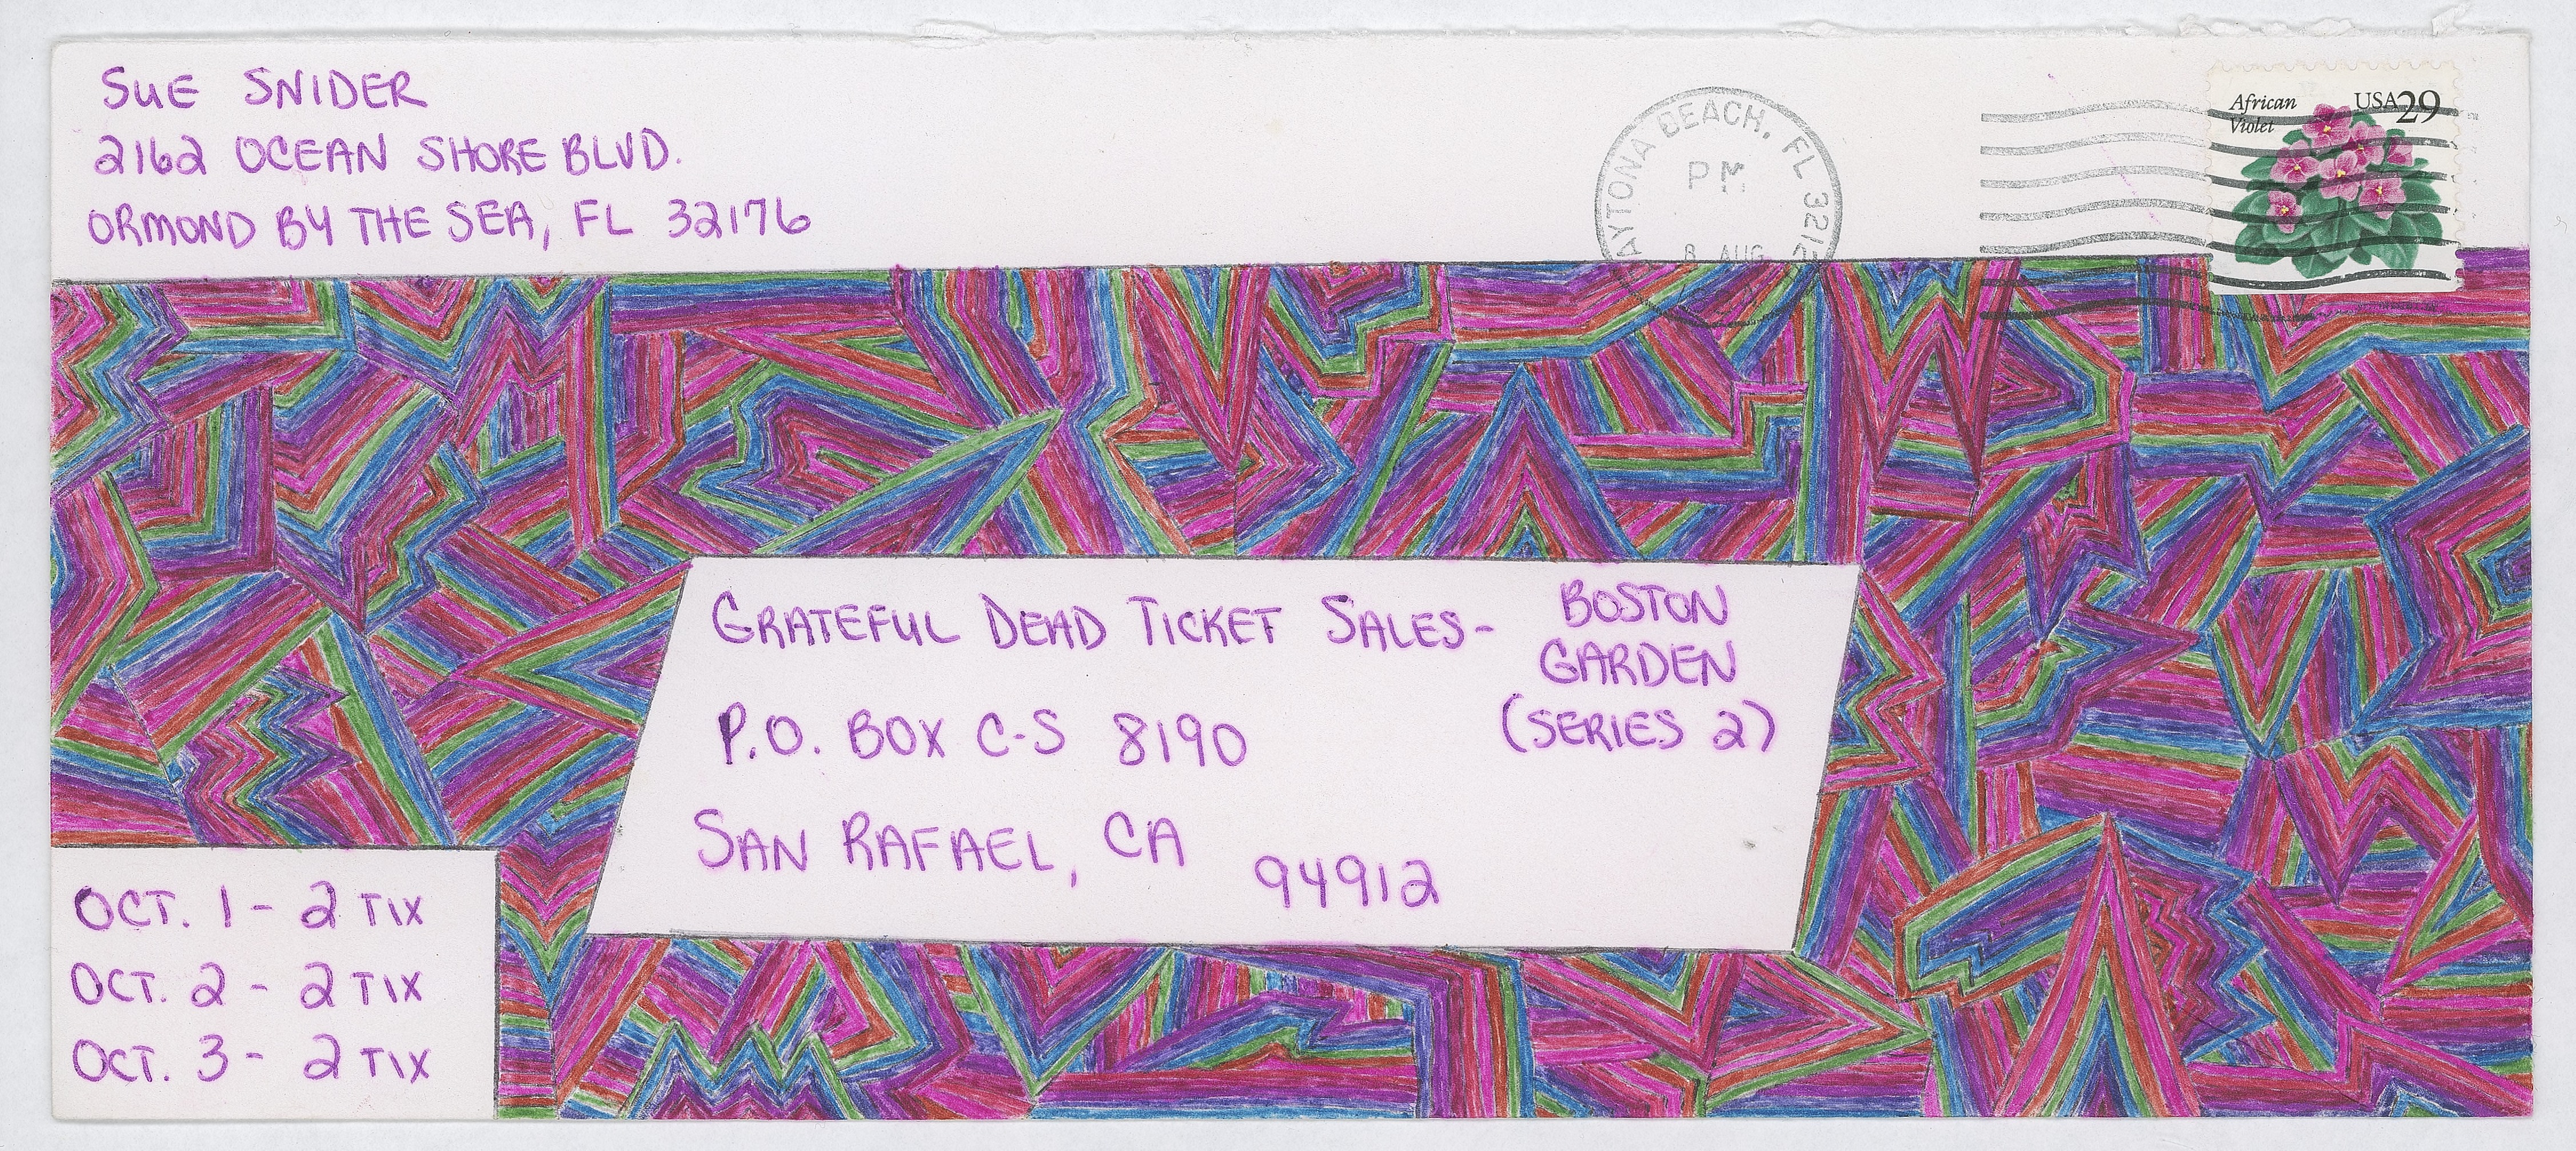 SUE SNIDER
2162 OCEAN SHORE BLVD.
ORMOND BY THE SEA, FL 32176
AYTONA BEACH, FL
PM
8 AUG
African
Violet
USA29
GRATEFUL DEAD TICKET SALES-
BOSTON
GARDEN
(SERIES 2)
P.O. BOX C-S 8190
SAN RAFAEL, CA
94912
OCT. 1 - 2 TIX
OCT. 2 - 2 TIX
OCT. 3 - 2 TIX